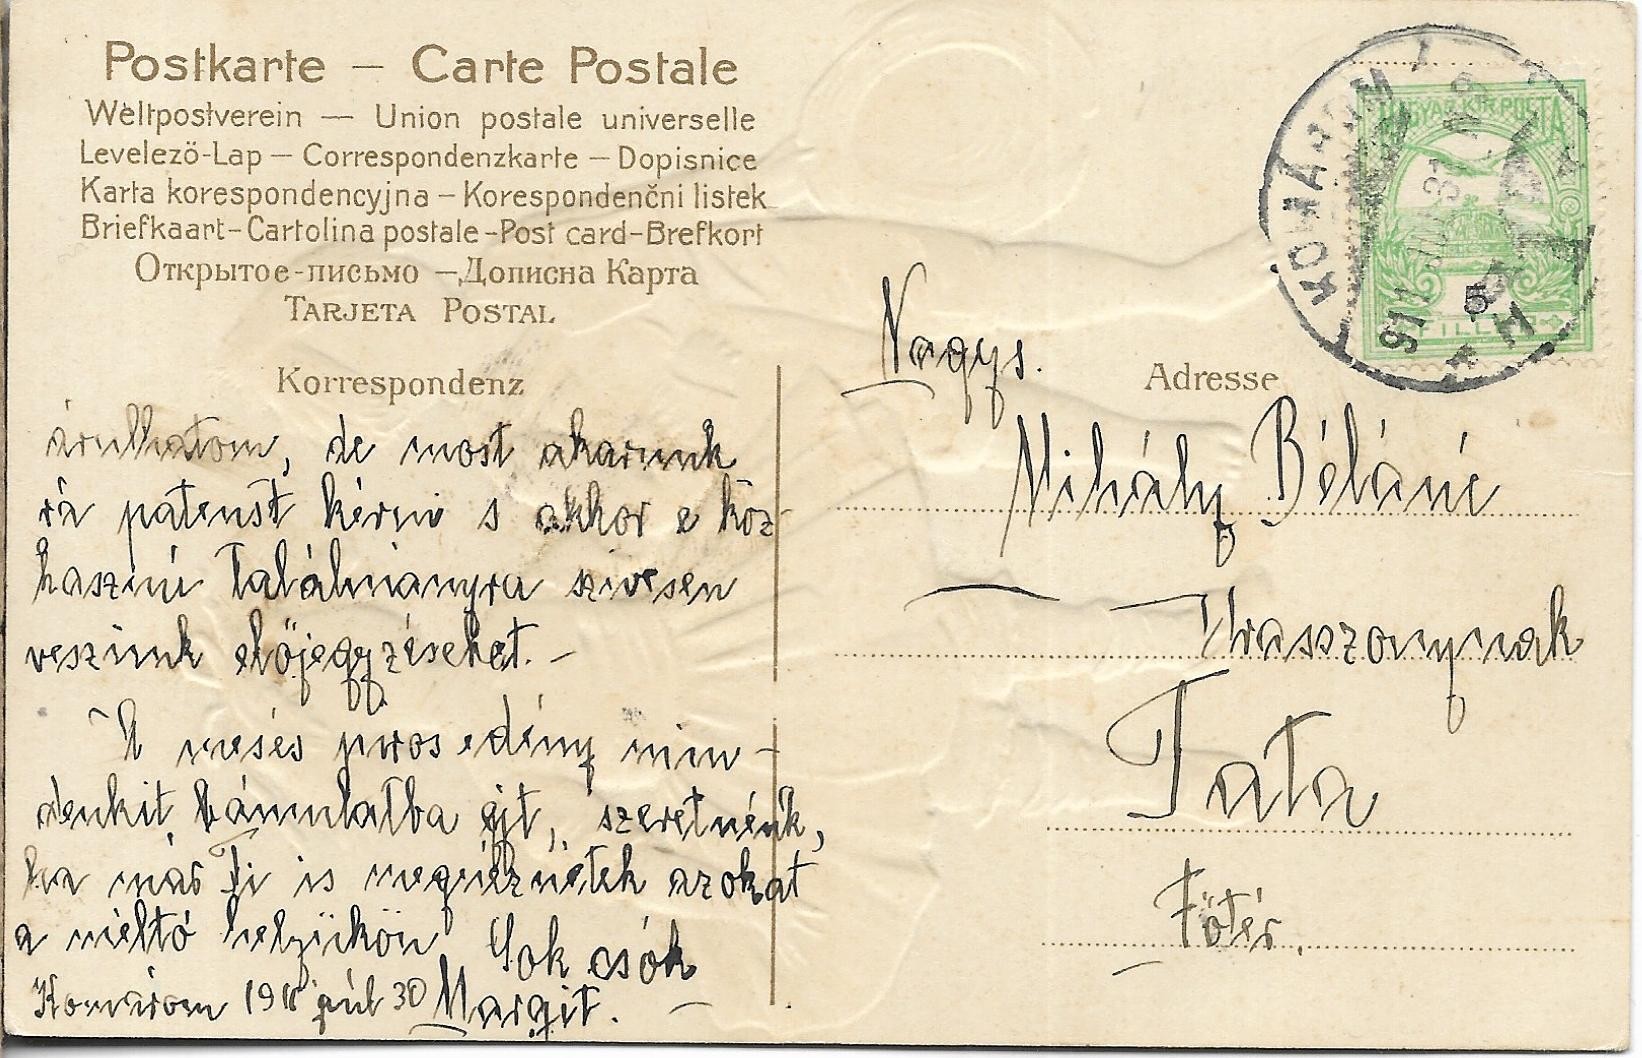 Postkarte – Carte Postale
Weltpostverein — Union postale universelle
Levelező-Lap – Correspondenzkarte – Dopisnice
Karta korespondencyjna – Korespondenčni listek
Briefkaart-Cartolina postale-Post card-Brefkort
Открытое-письмо – Дописна Карта
Tarjeta Postal
Korrespondenz
Adresse
árulhatom, de most akarunk
rá patenst kérni s akkor e köz-
hasznú találmányra szivesen
veszünk előjegyzéseket. –
A mesés piros edény min-
denkit bámulatba ejt, szeretnénk,
ha már Ti is megnéznétek azokat
a méltó helyükön Sok csók
Komárom 191 júl 30 Margit.
Nagys.
Mihály Béláné
Urasszonynak
Tata
Főtér.
MAGYAR KIR. POSTA
FILLÉR
5
KOMÁROM
911 31